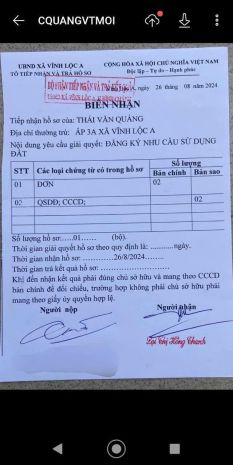 CQUANGVTMOI
UBND XÃ VĨNH LỘC A
TỔ TIẾP NHẬN VÀ TRẢ HỒ SƠ
CỘNG HÒA XÃ HỘI CHỦ NGHĨA VIỆT NAM
Độc lập - Tự do - Hạnh phúc
BỘ PHẬN TIẾP NHẬN VÀ TRẢ KẾT QUẢ
XÃ VĨNH LỘC A
ngày 26 tháng 08 năm 2024
BIÊN NHẬN
Tiếp nhận hồ sơ của: THÁI VĂN QUẢNG
Địa chỉ thường trú: ẤP 3A XÃ VĨNH LỘC A
Nội dung yêu cầu giải quyết: ĐĂNG KÝ NHU CẦU SỬ DỤNG
ĐẤT
STT Các loại chứng từ có trong hồ sơ Số lượng
Bản chính Bản sao
01 ĐƠN 02
02 QSDĐ; CCCD; 02
Số lượng hồ sơ:.....01...... (bộ).
Thời gian giải quyết hồ sơ theo quy định là: ............ngày.
Thời gian nhận hồ sơ: ............26/8/2024.......
Thời gian trả kết quả hồ sơ: ............
Khi đến nhận kết quả phải đúng chủ sở hữu và mang theo CCCD
bản chính để đối chiếu, trường hợp không phải chủ sở hữu phải
mang theo giấy ủy quyền hợp lệ.
Người nộp Người nhận
Lại Thị Hồng Chanh